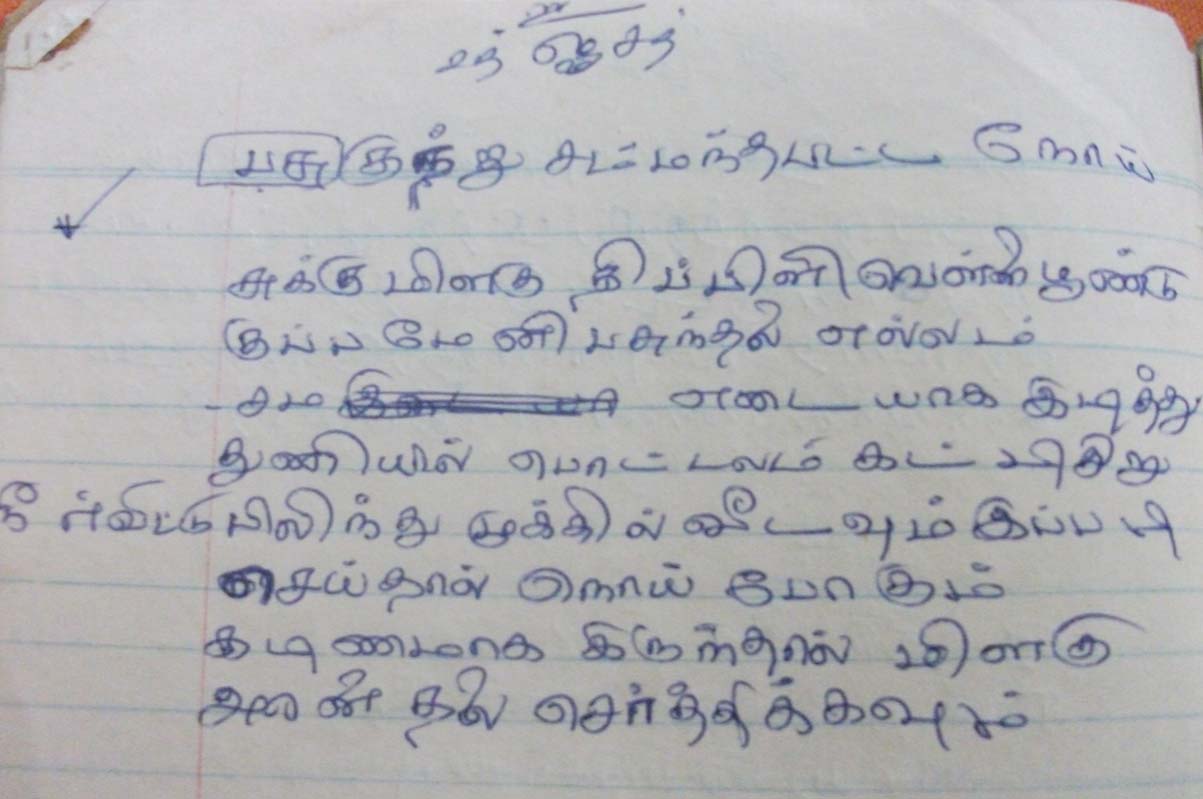 பசு குத்து சம்மந்தபட்ட நோய்
சுக்கு மிளகு திப்பிளி வெள்ளை பூண்டு
குப்பமேனி பசுந்தலை எல்லம்
சம எடையாக இடித்து
துணியில் பொட்டலம் கட்டி சிறு
நீர்விட்டு பிலிந்து முக்கில் வீடவும் இப்படி
செய்தால் நொய் போகும்
கடிணமாக இருந்தால் மிளகு
தலை செர்த்திக்கவும்